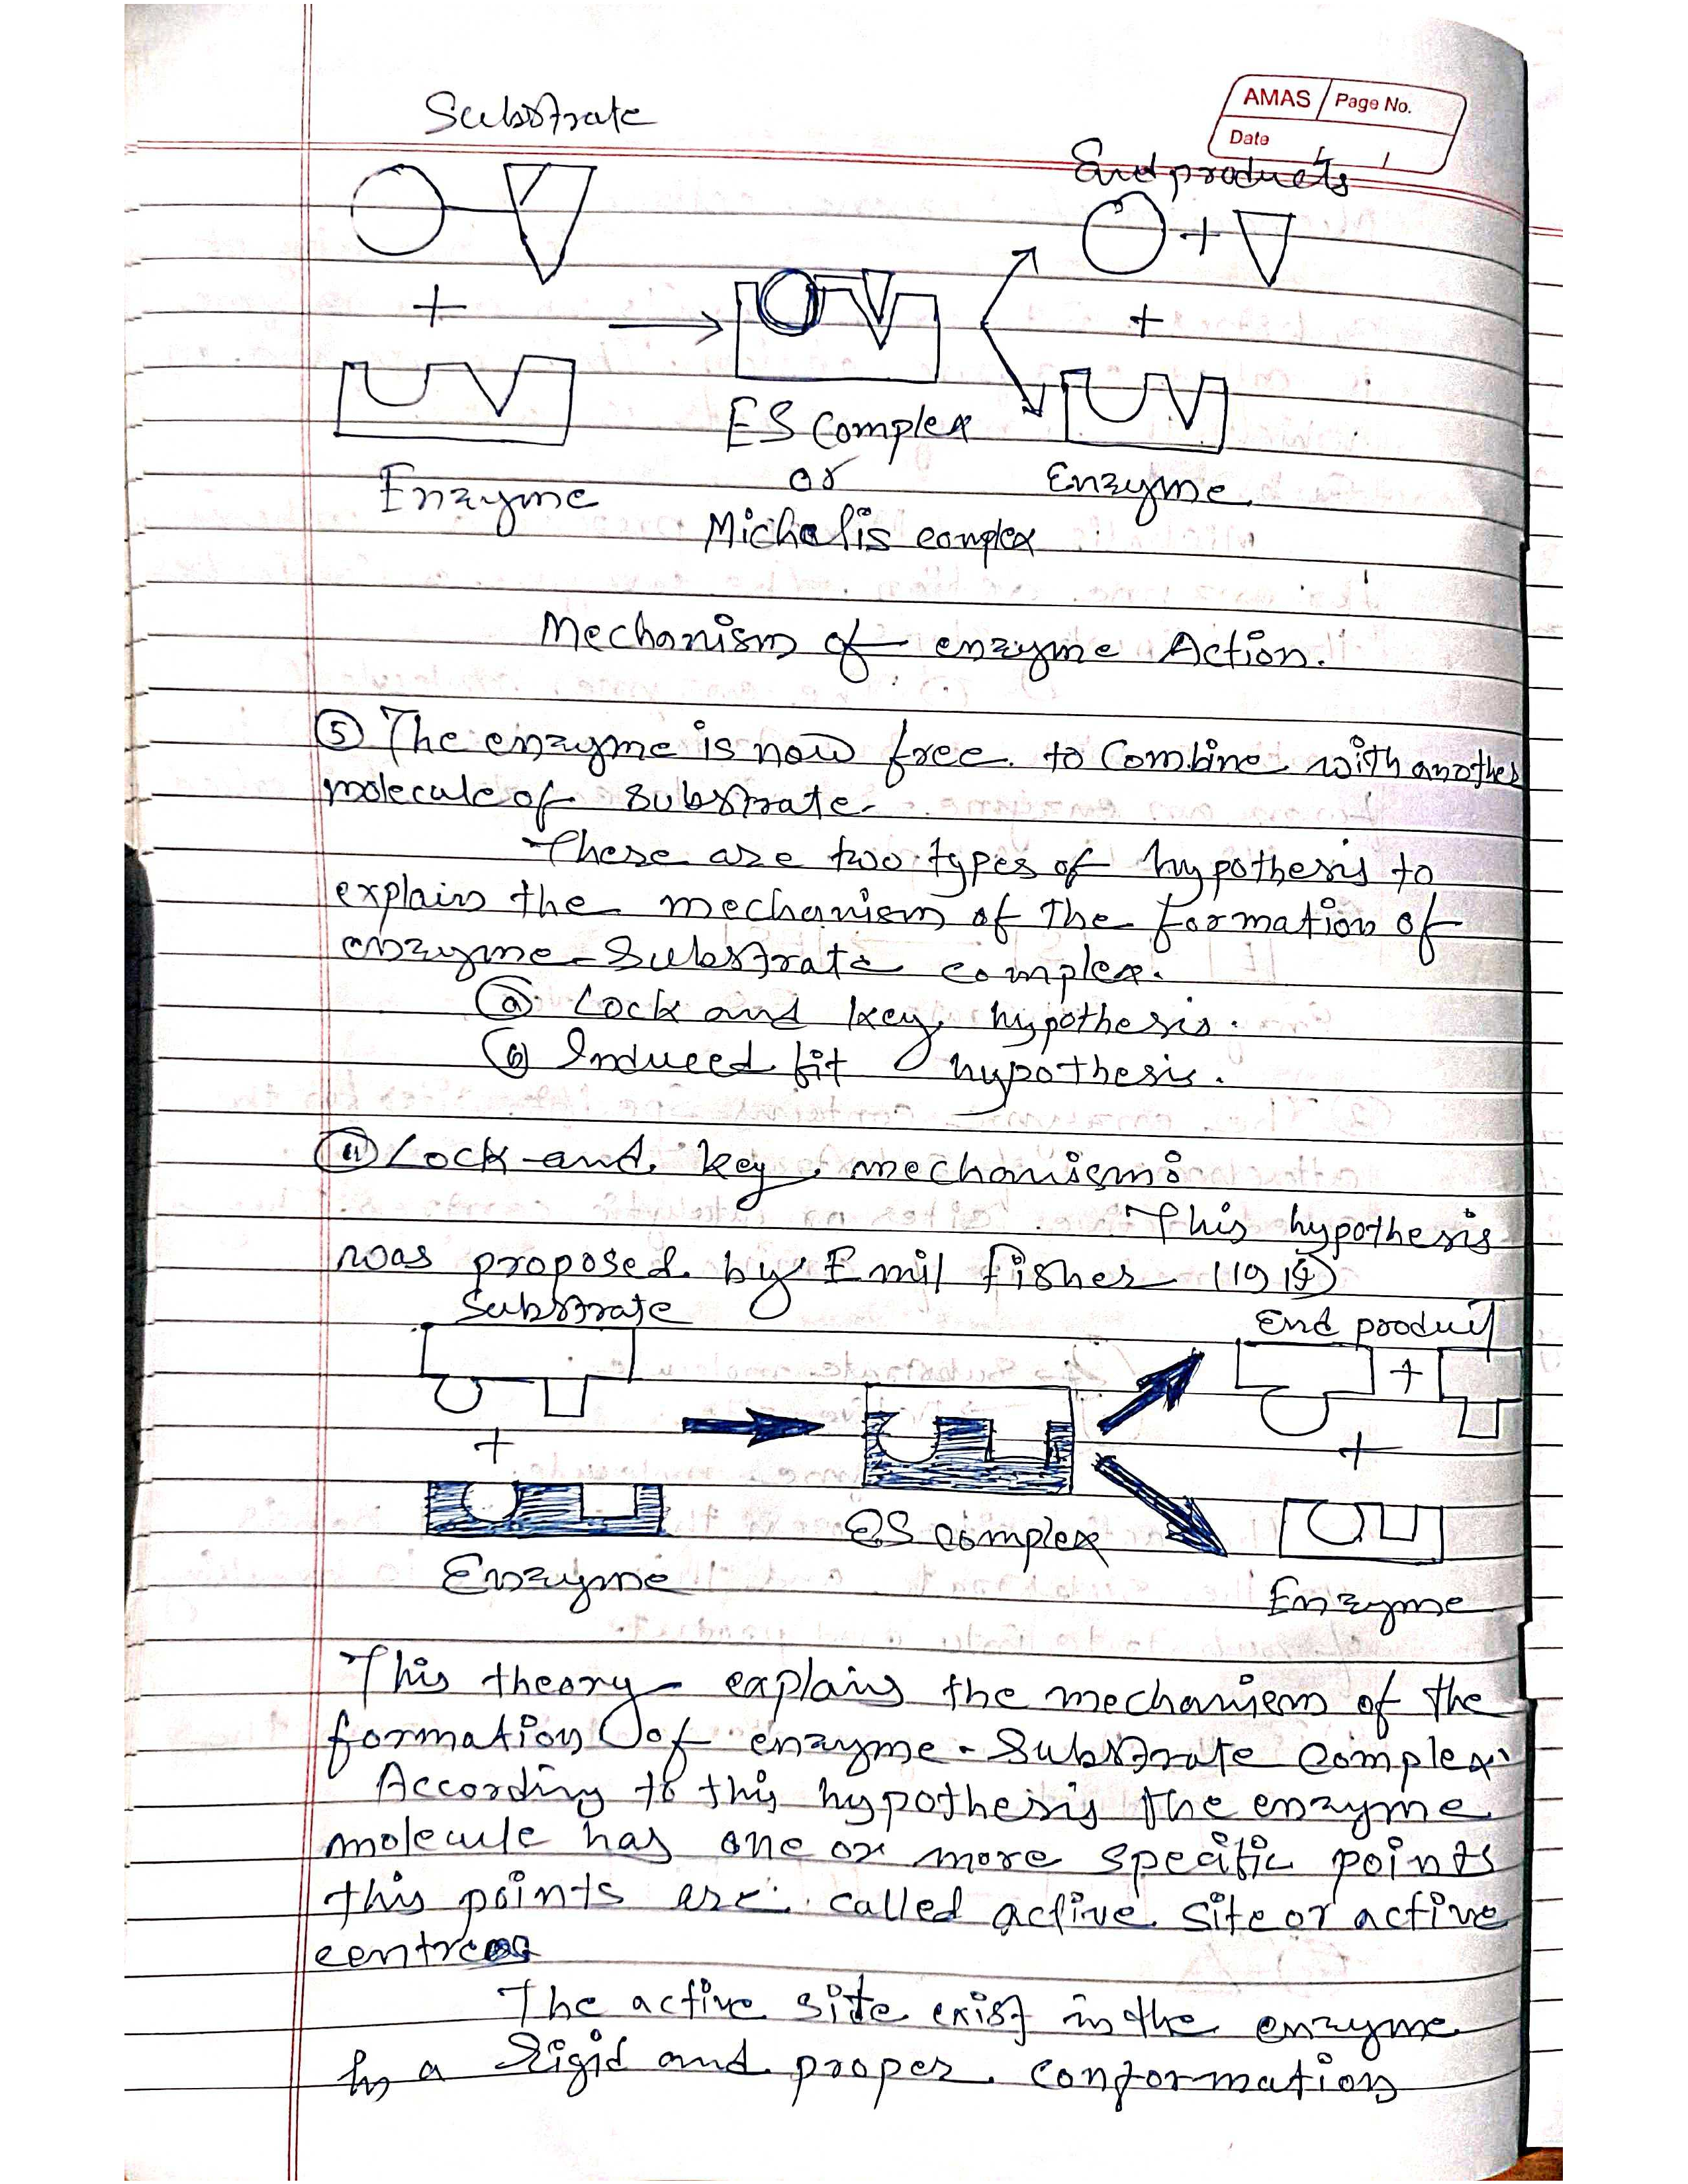 AMAS Page No.
Date
Substrate
End products
+
+
+
ES Complex
Enzyme
or
Enzyme
Michalis complex
Mechanism of enzyme Action.
⑤ The enzyme is now free to Combine with another
molecule of substrate.
There are two types of hypothesis to
explain the mechanism of the formation of
enzyme-Substrate complex.
ⓐ Lock and key hypothesis.
ⓑ Induced fit hypothesis.
ⓐ Lock and key mechanism:
This hypothesis
was proposed by Emil fisher
Substrate
End product
+
+
+
ES complex
Enzyme
Enzyme
This theory explains the mechanism of the
formation of enzyme-Substrate complex.
According to this hypothesis the enzyme
molecule has one or more specific points
this points are called active site or active
centres
The active site exist in the enzyme
In a Rigid and proper conformation